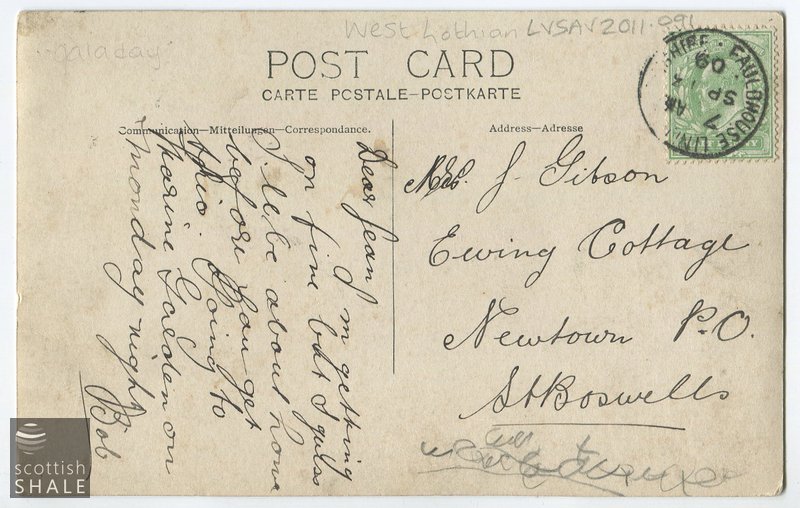 West Lothian LVSAV2011.091
galaday
POST CARD
CARTE POSTALE—POSTKARTE
Communication—Mitteilungen—Correspondance.
Address—Adresse
FAULDHOUSE LINLI SHIRE
AM
7
SP
09
Dear Jean
I'm getting
on fine but I guess
I'le be about home
before you get
this. Going to
Marine Garden on
Monday night
Bob
Mrs. J. Gibson
Ewing Cottage
Newtown P.O.
St Boswells
scottish
SHALE